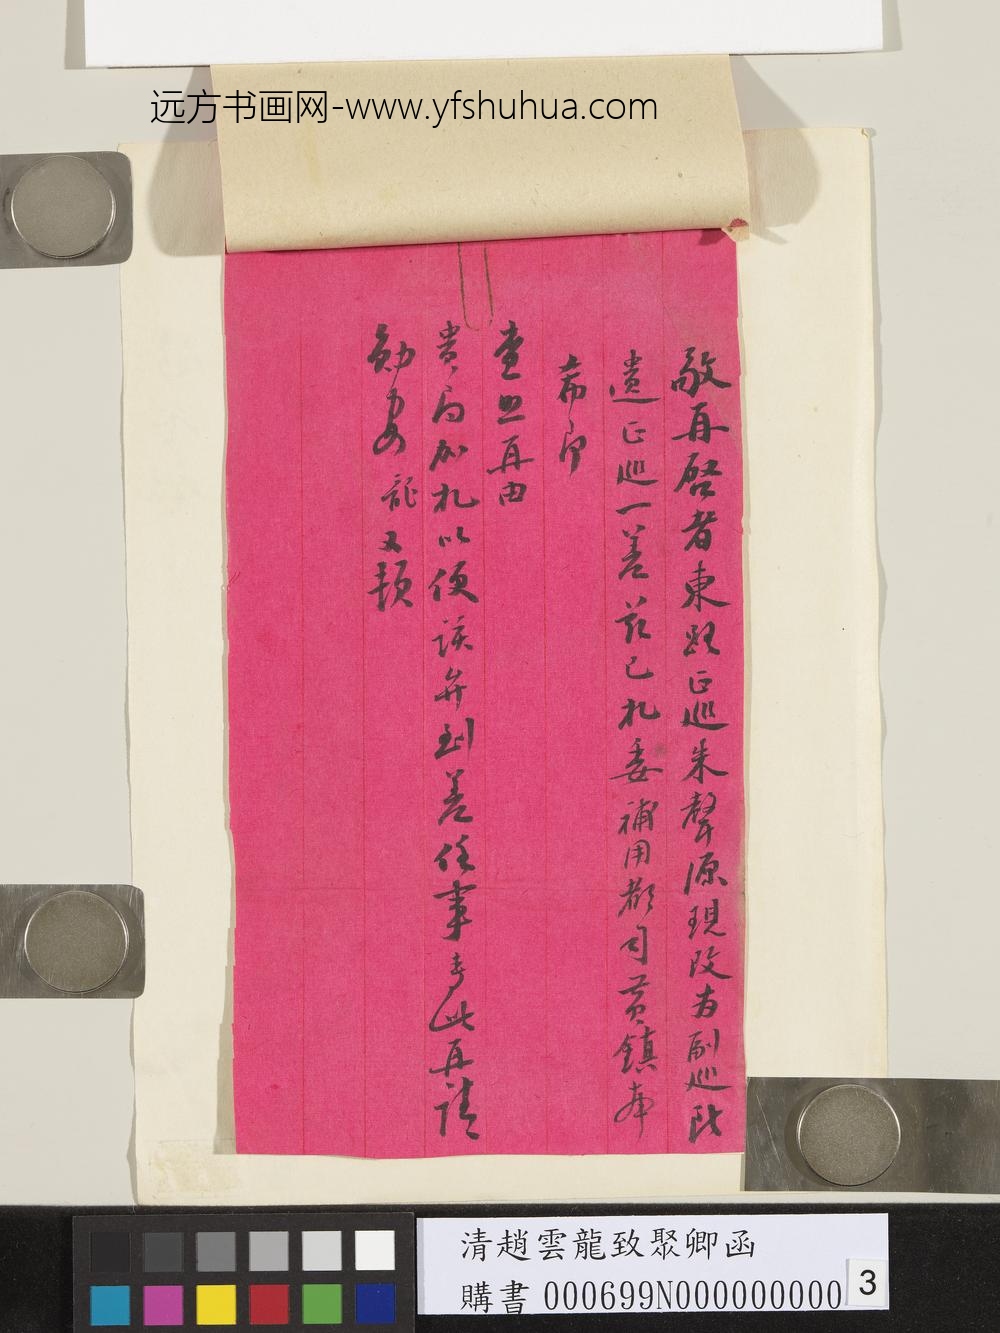 远方书画网-www.yfshuhua.com
敬再啓者東路正巡朱聲源現改為副巡所
遺正巡一差茲已札委補用都司黃鎮
希即
查照再由
貴局加札以便該弁到差任事專此再請
勛安 龍又頓
清趙雲龍致聚卿函
購書 000699N000000000
3